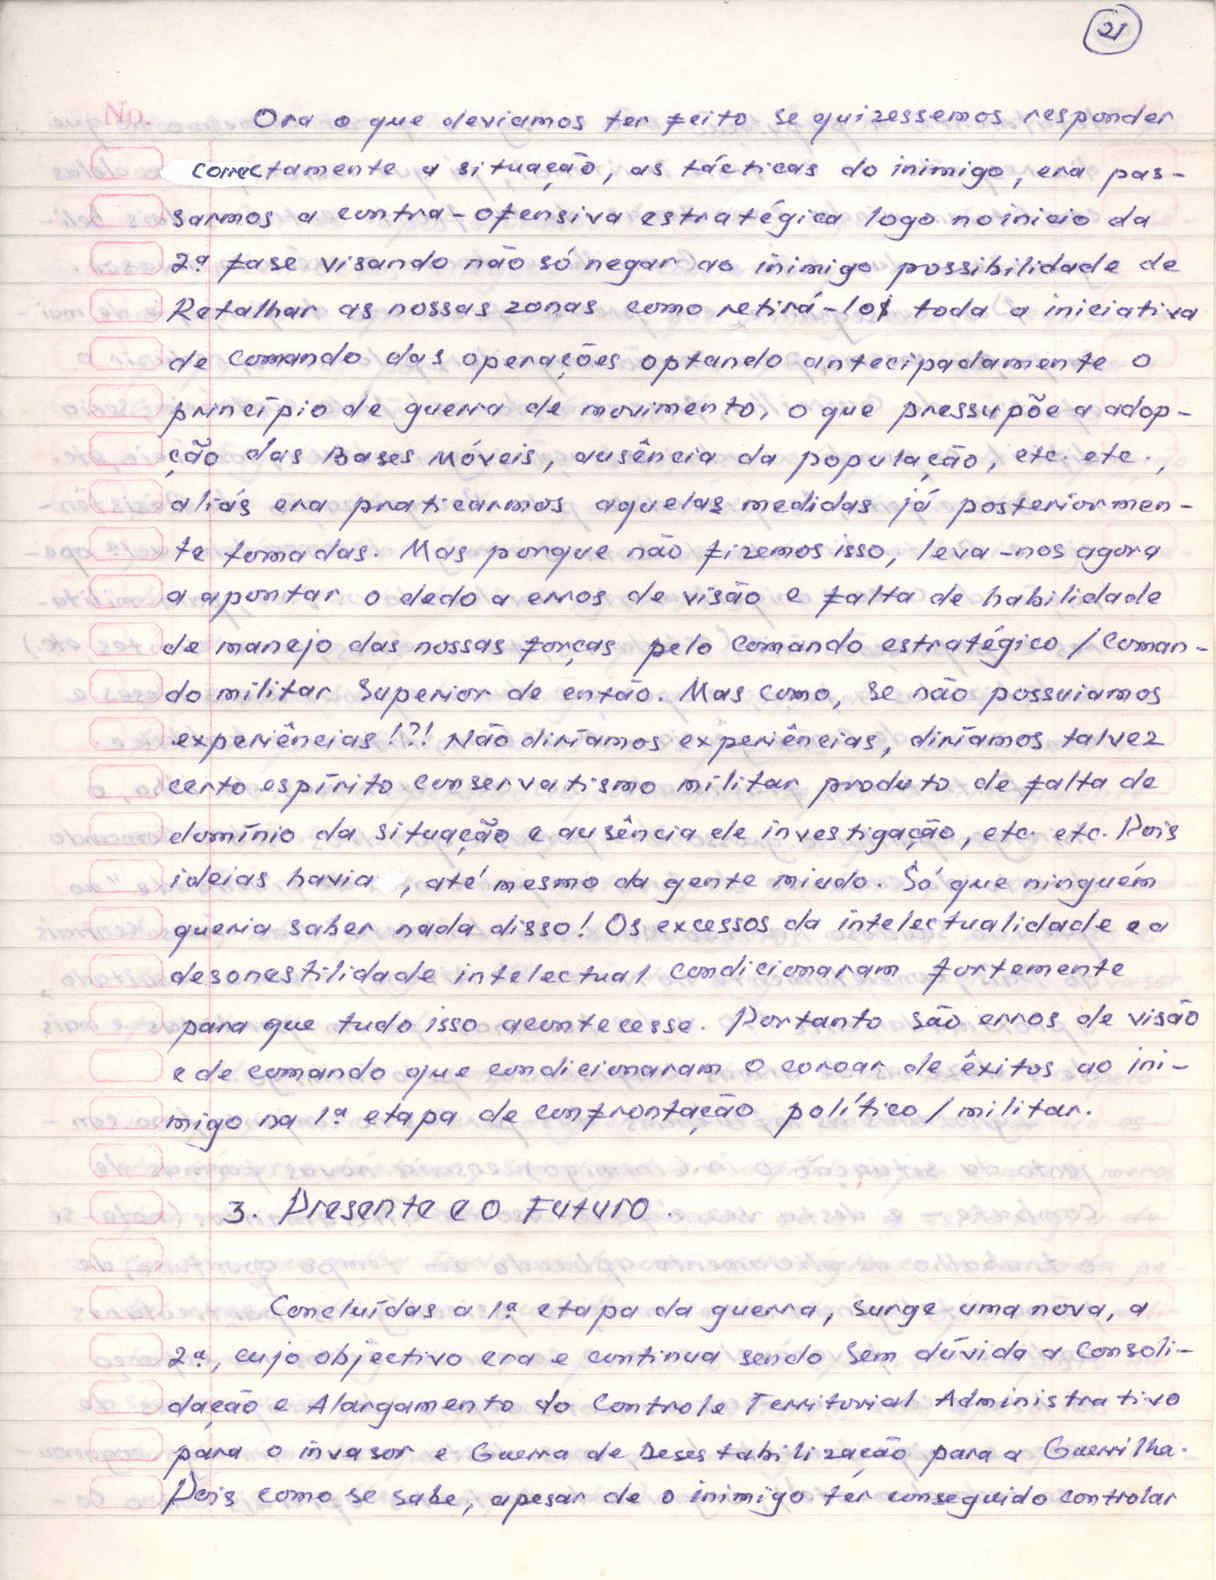 21
No.
Ora o que deviamos ter feito se quizessemos responder
correctamente a situação, as tácticas do inimigo, era pas-
sarmos a contra-ofensiva estratégica logo no inicio da
2ª fase visando não só negar ao inimigo possibilidade de
Retalhar as nossas zonas como retirá-los toda a iniciativa
de comando das operações optando antecipadamente o
princípio de guerra de movimento, o que pressupõe a adop-
ção das Bases Móveis, ausência da população, etc. etc.,
aliás era praticarmos aquelas medidas já posteriormen-
te tomadas. Mas porque não fizemos isso, leva-nos agora
a apontar o dedo a erros de visão e falta de habilidade
de manejo das nossas forças pelo Comando estratégico / Coman-
do militar Superior de então. Mas como, se não possuiamos
experiências!?! Não diríamos experiências, diríamos talvez
certo espírito conservatismo militar produto de falta de
domínio da situação e ausência de investigação, etc. etc. Pois
ideias havia , até mesmo da gente miudo. Só que ninguém
queria saber nada disso! Os excessos da intelectualidade e a
desonestilidade intelectual condicionaram fortemente
para que tudo isso acontecesse. Portanto são erros de visão
e de comando que condicionaram o coroar de êxitos ao ini-
migo na 1ª etapa de confrontação político / militar.
3. Presente e o Futuro.
Concluídas a 1ª etapa da guerra, surge uma nova, a
2ª, cujo objectivo era e continua sendo sem dúvida a Consoli-
dação e Alargamento do Controle Territorial Administrativo
para o invasor e Guerra de Desestabilização para a Guerrilha.
Pois como se sabe, apesar de o inimigo ter conseguido controlar